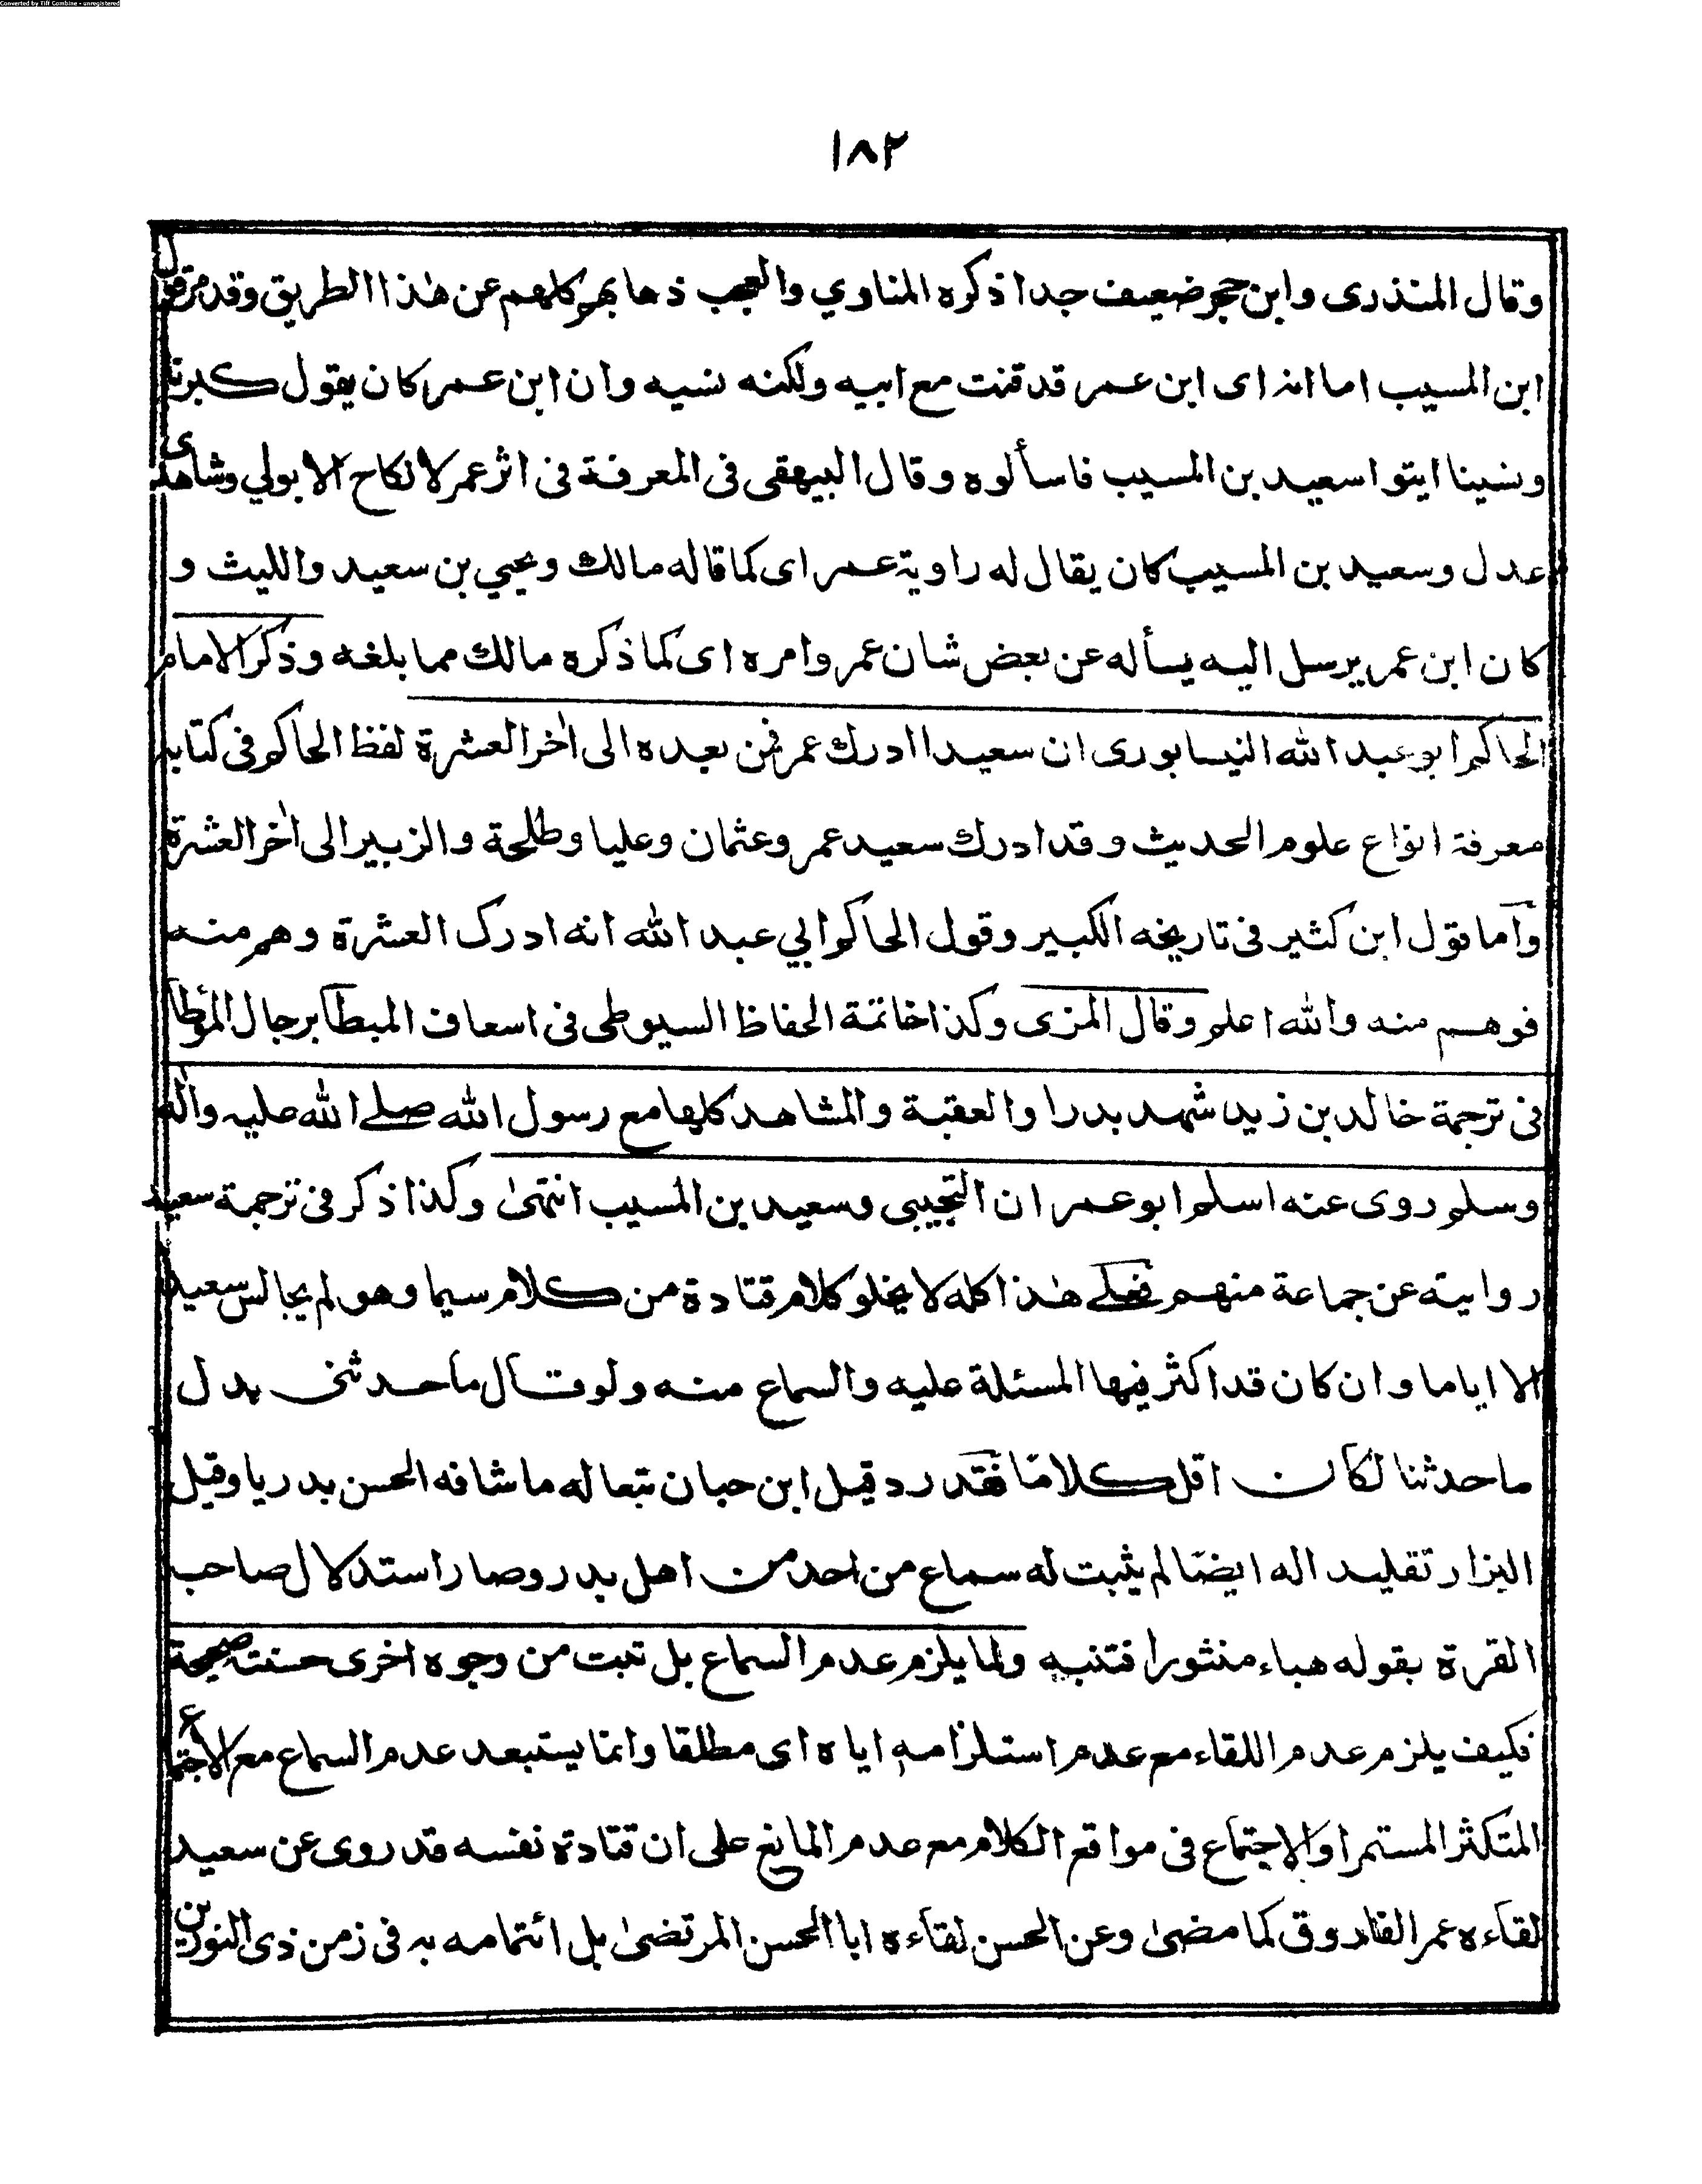 Converted by Tiff Combine - unregistered
١٨٢
وقال المنذرى وابن حجر ضعيف جدا ذكره المناوي والعجب ذهابهم كلهم عن هٰذا الطريق وقد مر قول
ابن المسيب اما انه اى ابن عمر قد قنت مع ابيه ولكنه نسيه وان ابن عمر كان يقول كبرنا
ونسينا ايتوا سعيد بن المسيب فاسألوه وقال البيهقى فى المعرفة فى اثر عمر لا نكاح الا بولي وشاهدى
عدل وسعيد بن المسيب كان يقال له راوية عمر اى كما قاله مالك ويحيي بن سعيد والليث و
كان ابن عمر يرسل اليه يسأله عن بعض شان عمر وامره اى كما ذكره مالك مما بلغه وذكر الامام
الحاكم ابو عبد الله النيسابورى ان سعيدا ادرك عمر فمن بعده الى اٰخر العشرة لفظ الحاكم فى كتابه
معرفة انواع علوم الحديث وقد ادرك سعيد عمر وعثمان وعليا وطلحة والزبير الى اٰخر العشرة
وآما قول ابن كثير فى تاريخه الكبير وقول الحاكم ابي عبد الله انه ادرك العشرة وهم منه
فوهم منه والله اعلم وقال المزى وكذا خاتمة الحفاظ السيوطى فى اسعاف المبطأ برجال المؤطا
فى ترجمة خالد بن زيد شهد بدرا والعقبة والمشاهد كلها مع رسول الله صلے الله عليه واٰله
وسلم روى عنه اسلم ابو عمران التجيبى وسعيد بن المسيب انتهىٰ وكذا ذكر فى ترجمة سعيد
روايته عن جماعة منهم فعلے هٰذا كله لا يخلو كلام قتادة من كلام سيما وهو لم يجالس سعيد
الا اياما وان كان قد اكثر فيها المسئلة عليه والسماع منه ولو قال ما حدثنى بدل
ما حدثنا لكان اقل كلاما فقد رد قيل ابن حبان تبعا له ما شافه الحسن بدريا وقيل
البزار تقليد اله ايضا لم يثبت له سماع من احد من اهل بدر وصار استدلال صاحب
القرة بقوله هباء منثورا فتنبه ولما يلزم عدم السماع بل تبت من وجوه اخرى حسنة صحيحة
فكيف يلزم عدم اللقاء مع عدم استلزامه اياه اى مطلقا وانما يستبعد عدم السماع مع الاجتماع
المتكثر المستمر او الاجتماع فى مواقع الكلام مع عدم المانع على ان قتادة نفسه قد روى عن سعيد
لقاءه عمر الفاروق كما مضىٰ وعن الحسن لقاءه ابا الحسن المرتضىٰ بل ائتمامه به فى زمن ذى النورين